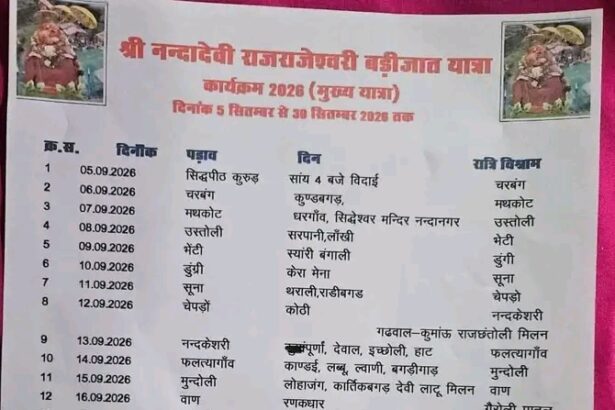 श्री नन्दादेवी राजराजेश्वरी बड़ीजात यात्रा
कार्यक्रम 2026 (मुख्य यात्रा)
दिनांक 5 सितम्बर से 30 सितम्बर 2026 तक
क्र.स. दिनाँक पड़ाव दिन रात्रि विश्राम
1 05.09.2026 सिद्धपीठ कुरुड़ सांय 4 बजे विदाई चरबंग
2 06.09.2026 चरबंग कुण्डबगड़, मथकोट
3 07.09.2026 मथकोट धरगाँव, सिद्धेश्वर मन्दिर नन्दानगर उस्तोली
4 08.09.2026 उस्तोली सरपानी,लाँखी भेटी
5 09.09.2026 भेंटी स्यांरी बंगाली डुंगी
6 10.09.2026 डुंग्री केरा मेना सूना
7 11.09.2026 सूना थराली,राडीबगड चेपड़ो
8 12.09.2026 चेपड़ों कोठी नन्दकेशरी
गढवाल–कुमांऊ राजछंतोली मिलन
9 13.09.2026 नन्दकेशरी पूर्णा, देवाल, इच्छोली, हाट फलत्यागाँव
10 14.09.2026 फलत्यागाँव काण्डई, लब्बू, ल्वाणी, बगड़ीगाड़ मुन्दोली
11 15.09.2026 मुन्दोली लोहाजंग, कार्तिकबगड़ देवी लाटू मिलन वाण
12 16.09.2026 वाण रणकधार